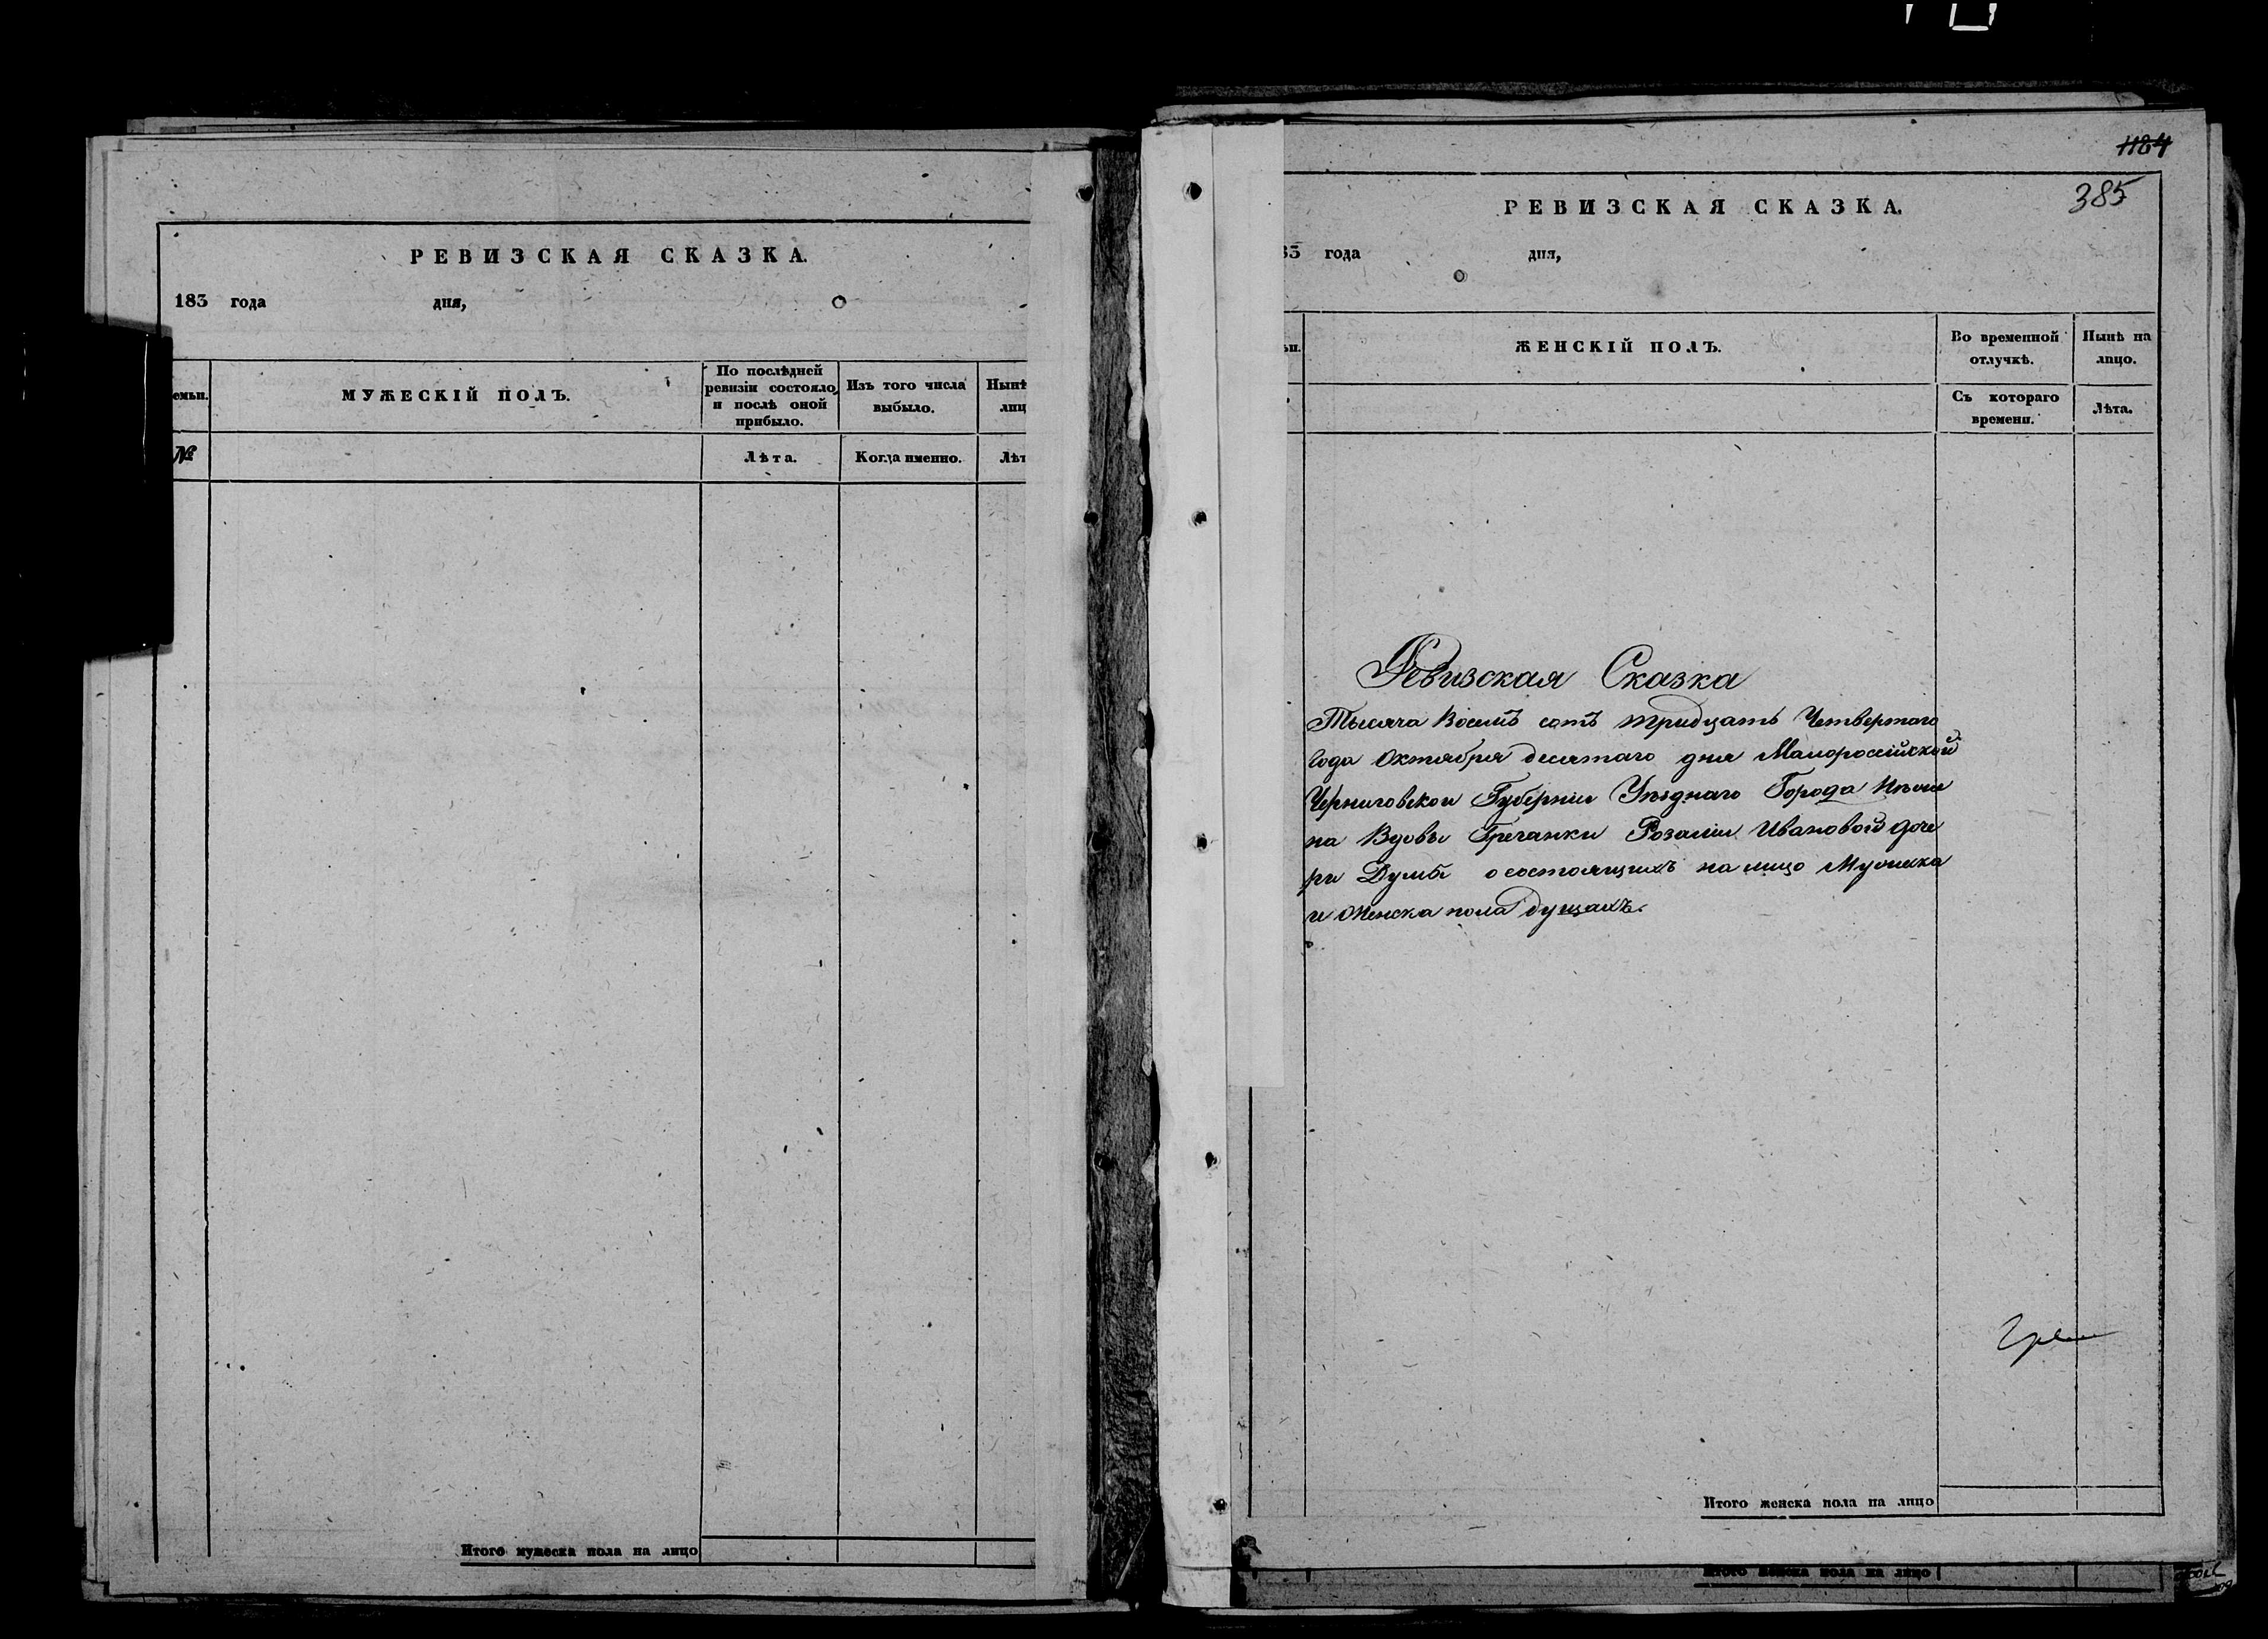 РЕВИЗСКАЯ СКАЗКА.
183 года дня,
емьи.
МУЖЕСКІЙ ПОЛЪ.
По послѣдней ревизіи состояло, и послѣ оной прибыло.
Изъ того числа выбыло.
Нынѣ
лиц
№
Лѣта.
Когда именно.
Лѣт
Итого мужеска пола на лицо
1184
385
РЕВИЗСКАЯ СКАЗКА.
83 года дня,
ьи.
ЖЕНСКІЙ ПОЛЪ.
Во временной отлучкѣ.
Нынѣ на лицо.
Съ котораго времени.
Лѣта.
Ревизская Сказка
Тысяча Восемь сотъ тридцать Четвертаго
года Октября десятаго дня Малороссійской
Черниговской Губерніи Уѣзднаго Города Нѣжи
на Вдовы Гречанки Розаліи Ивановой доче
ри Думы о состоящихъ на лицо Мужеска
и Женска пола душахъ.
Итого женска пола на лицо
Итого женска пола на лицо